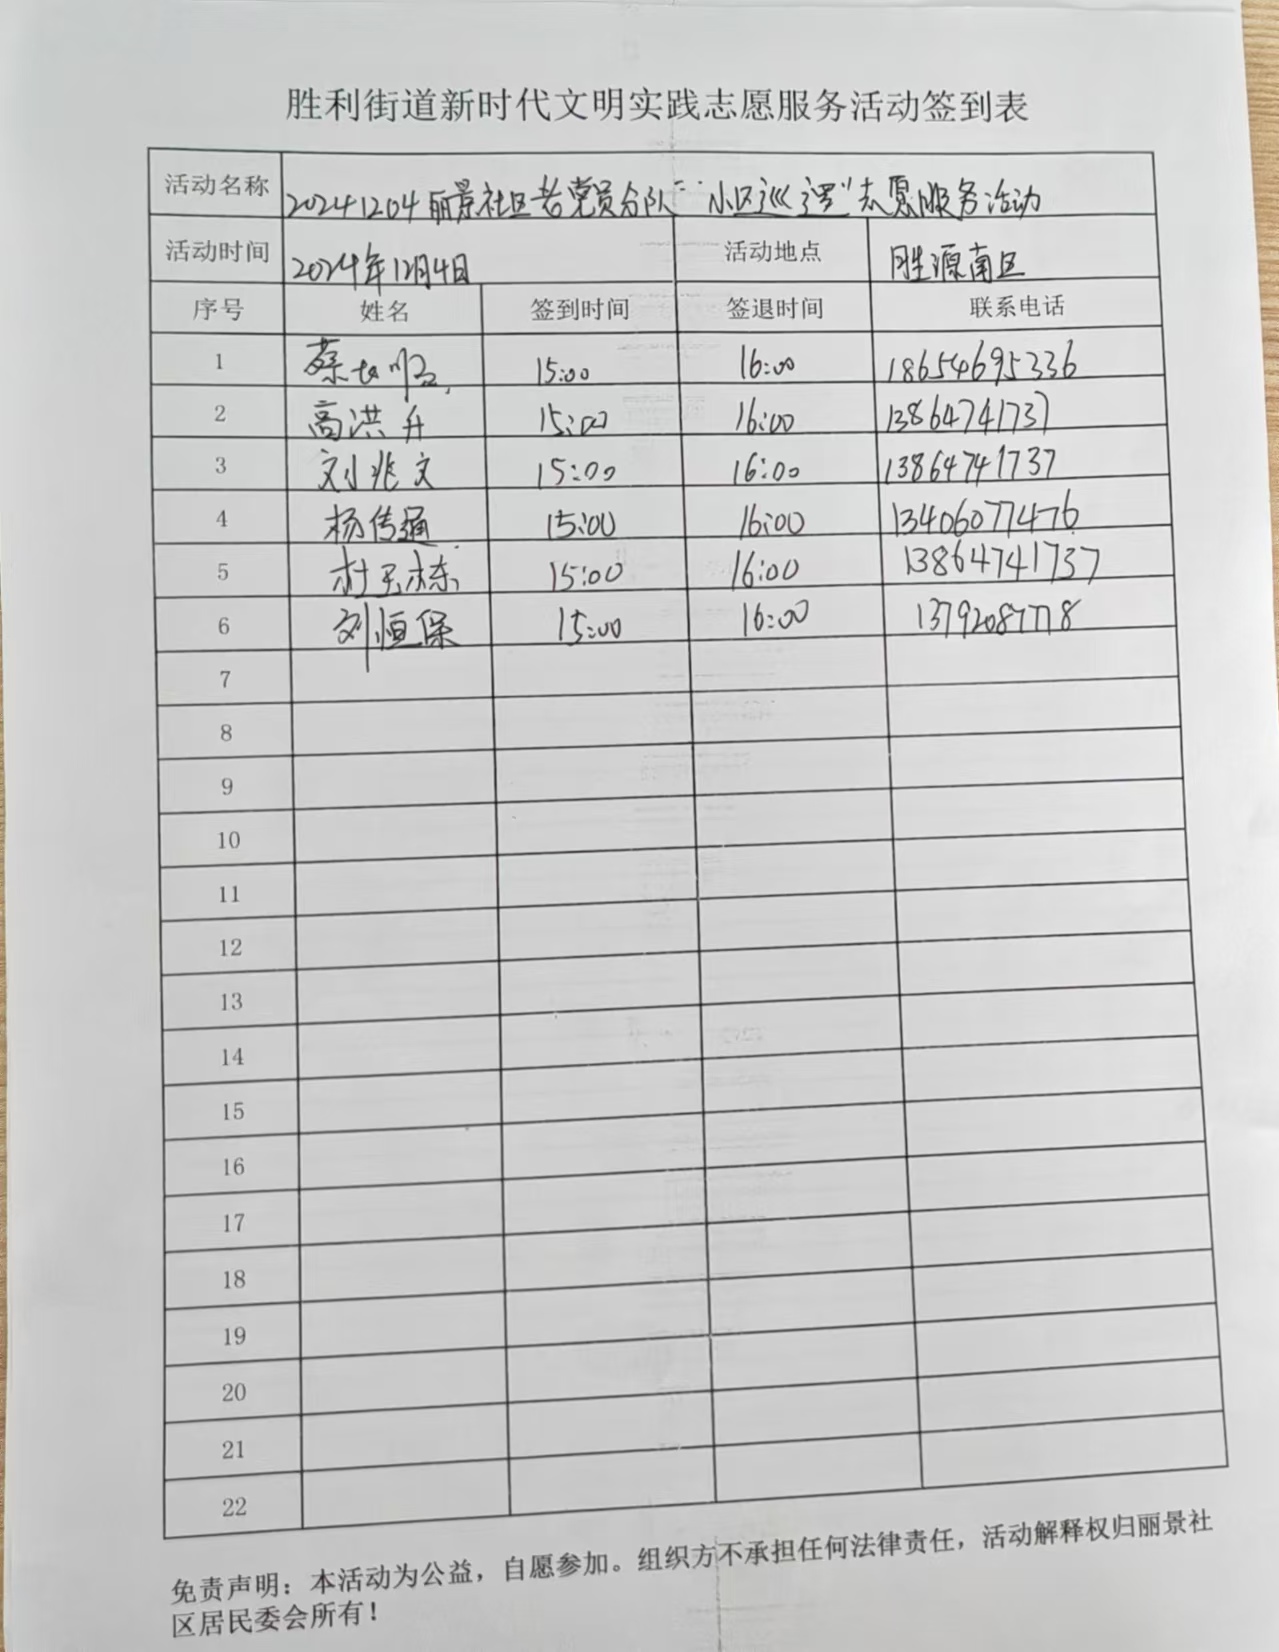 胜利街道新时代文明实践志愿服务活动签到表
活动名称 20241204丽景社区老党员分队“小区巡逻”志愿服务活动
活动时间 2024年12月4日 活动地点 胜源南区
序号 姓名 签到时间 签退时间 联系电话
1 蔡 15:00 16:00 18654695336
2 高洪升 15:00 16:00 13864741737
3 刘兆文 15:00 16:00 13864741737
4 杨传通 15:00 16:00 13406077476
5 杜玉栋 15:00 16:00 13864741737
6 刘恒保 15:00 16:00 13792087778
7
8
9
10
11
12
13
14
15
16
17
18
19
20
21
22
免责声明：本活动为公益，自愿参加。组织方不承担任何法律责任，活动解释权归丽景社
区居民委会所有！